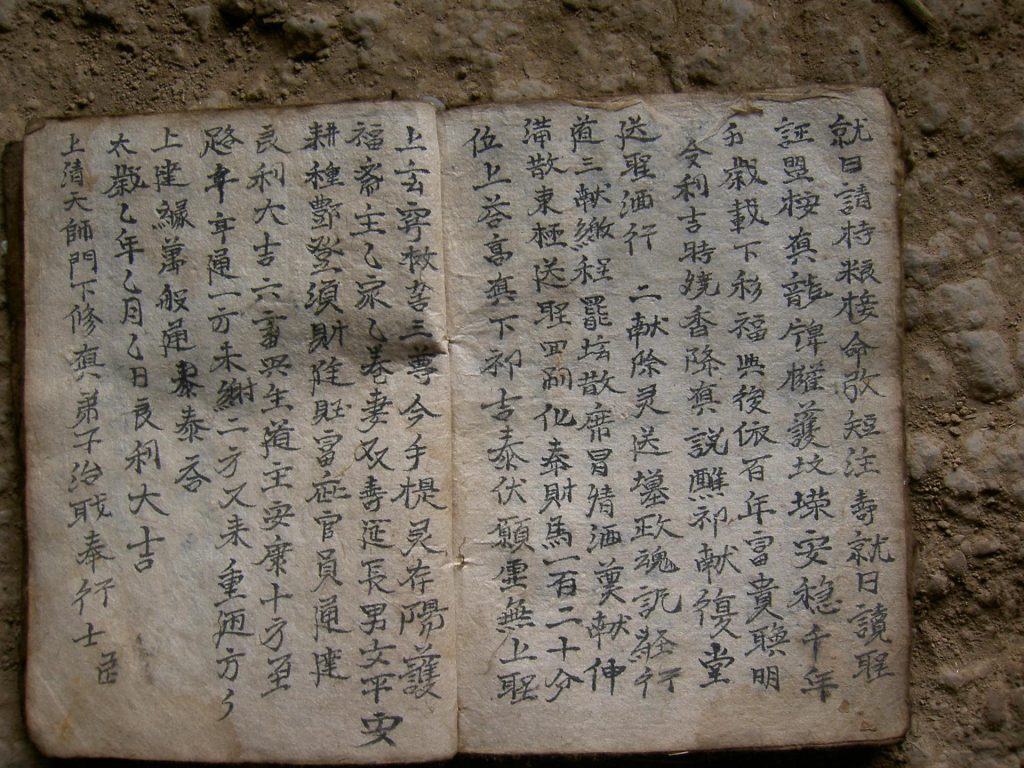 就日請持粮接命攷短注壽就日讀聖
証盟桉真龍牌權護坟塋安稳千年
歲載下彩福與後依百年富貴聯明
令利吉時燒香降真説醮祁献復堂
送聖酒行 二献除灵送墓政魂説経行
道三献繳程罷坛散席冒猜酒奠献伸
滞散東極送聖回嗣化奉財馬一百二十分
位上荅高真下祁吉泰伏願虚無上聖
上玄穹救苦三尊今手提灵存陽護
福斎主乙家乙巷妻双壽延長男女平安
耕種豐登須財陞旺富旺官員通達
良利大吉六畜興生道主安康十方至
路年年通一方未謝二方又来重廻方々
上達緣萬般通泰泰吝
太歲乙年乙月乙日良利大吉
上清大師門下修真弟子治職奉行士臣